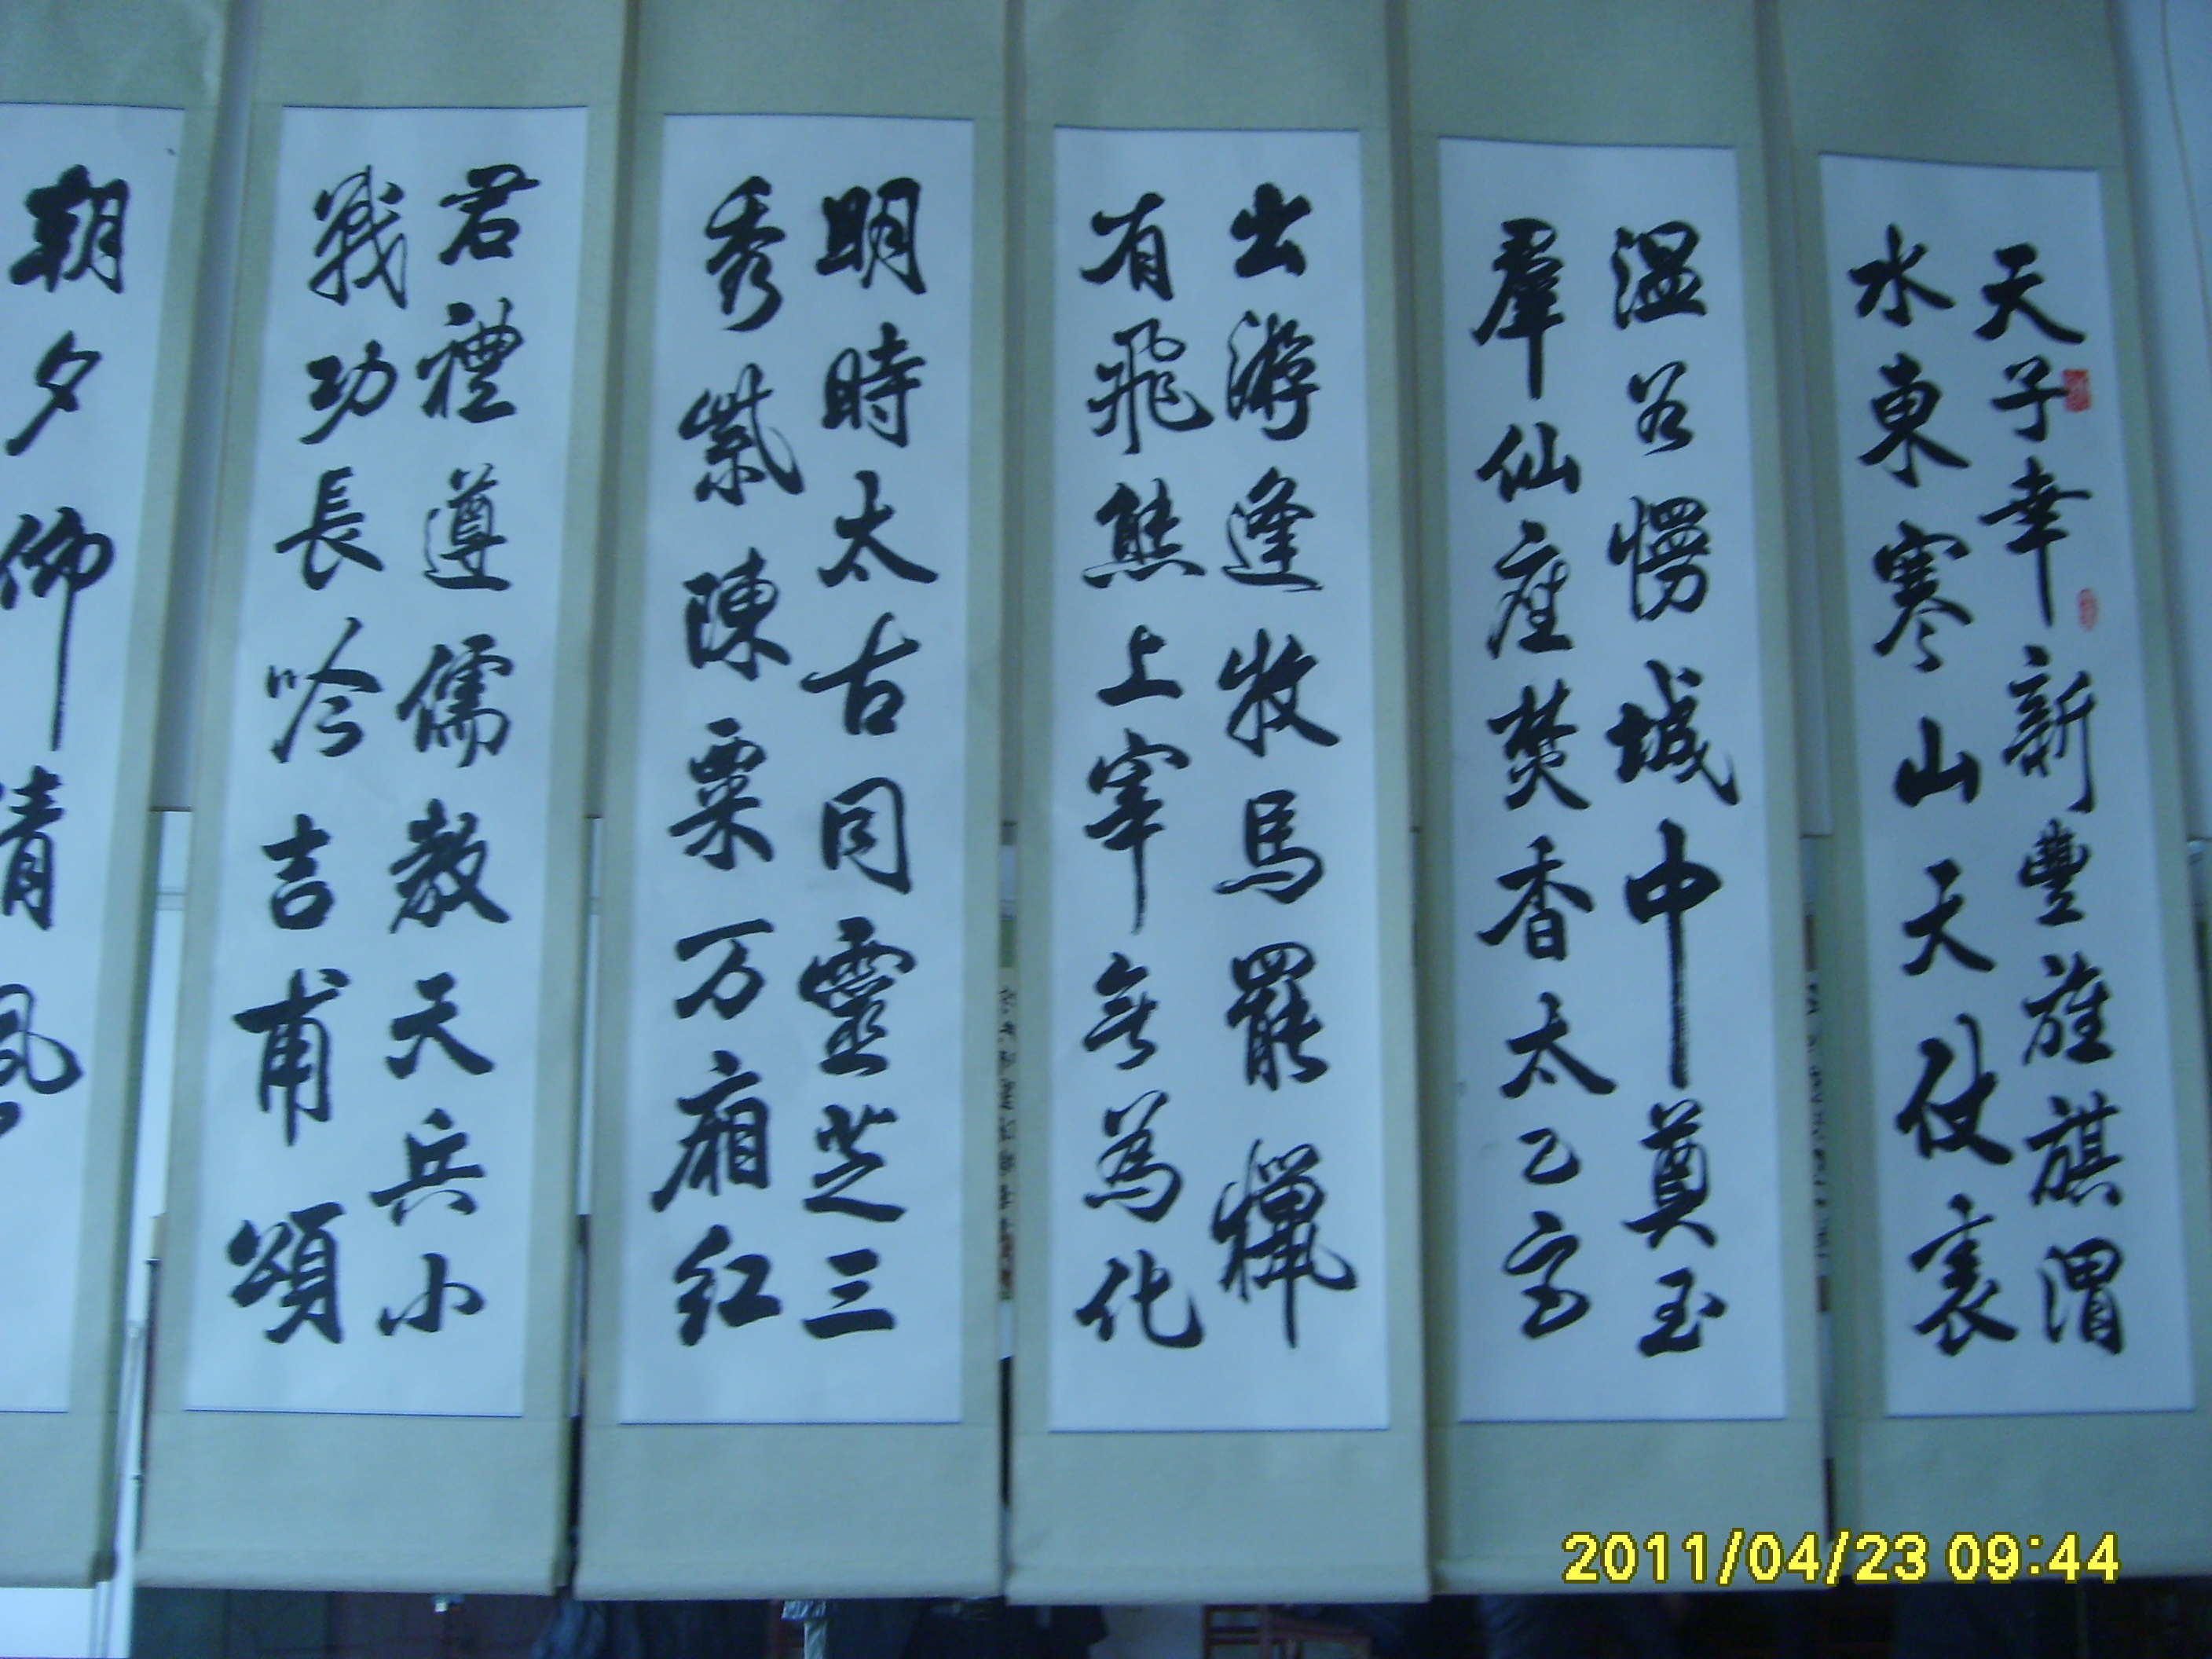 天子幸新豐旌旗渭
水東寒山天仗裏
溫谷幔城中奠玉
羣仙座焚香太乙宮
出游逢牧馬罷獵
有飛熊上宰無為化
明時太古同靈芝三
秀紫陳粟万廂红
君禮遵儒教天兵小
戰功長吟吉甫頌
朝夕仰清風
2011/04/23 09:44